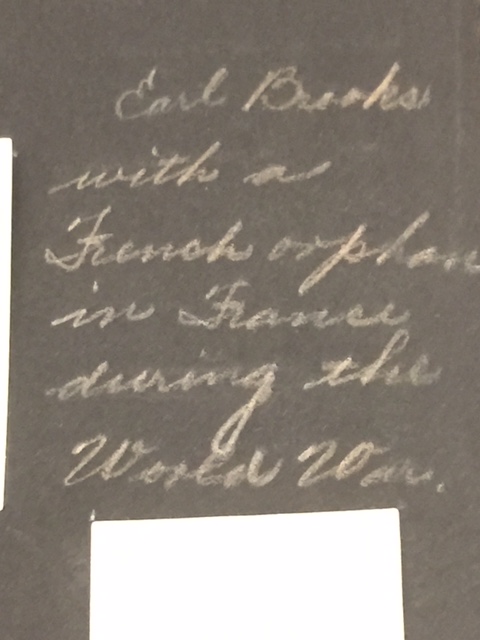 Earl Brooks
with a
French orphan
in France
during the
World War.